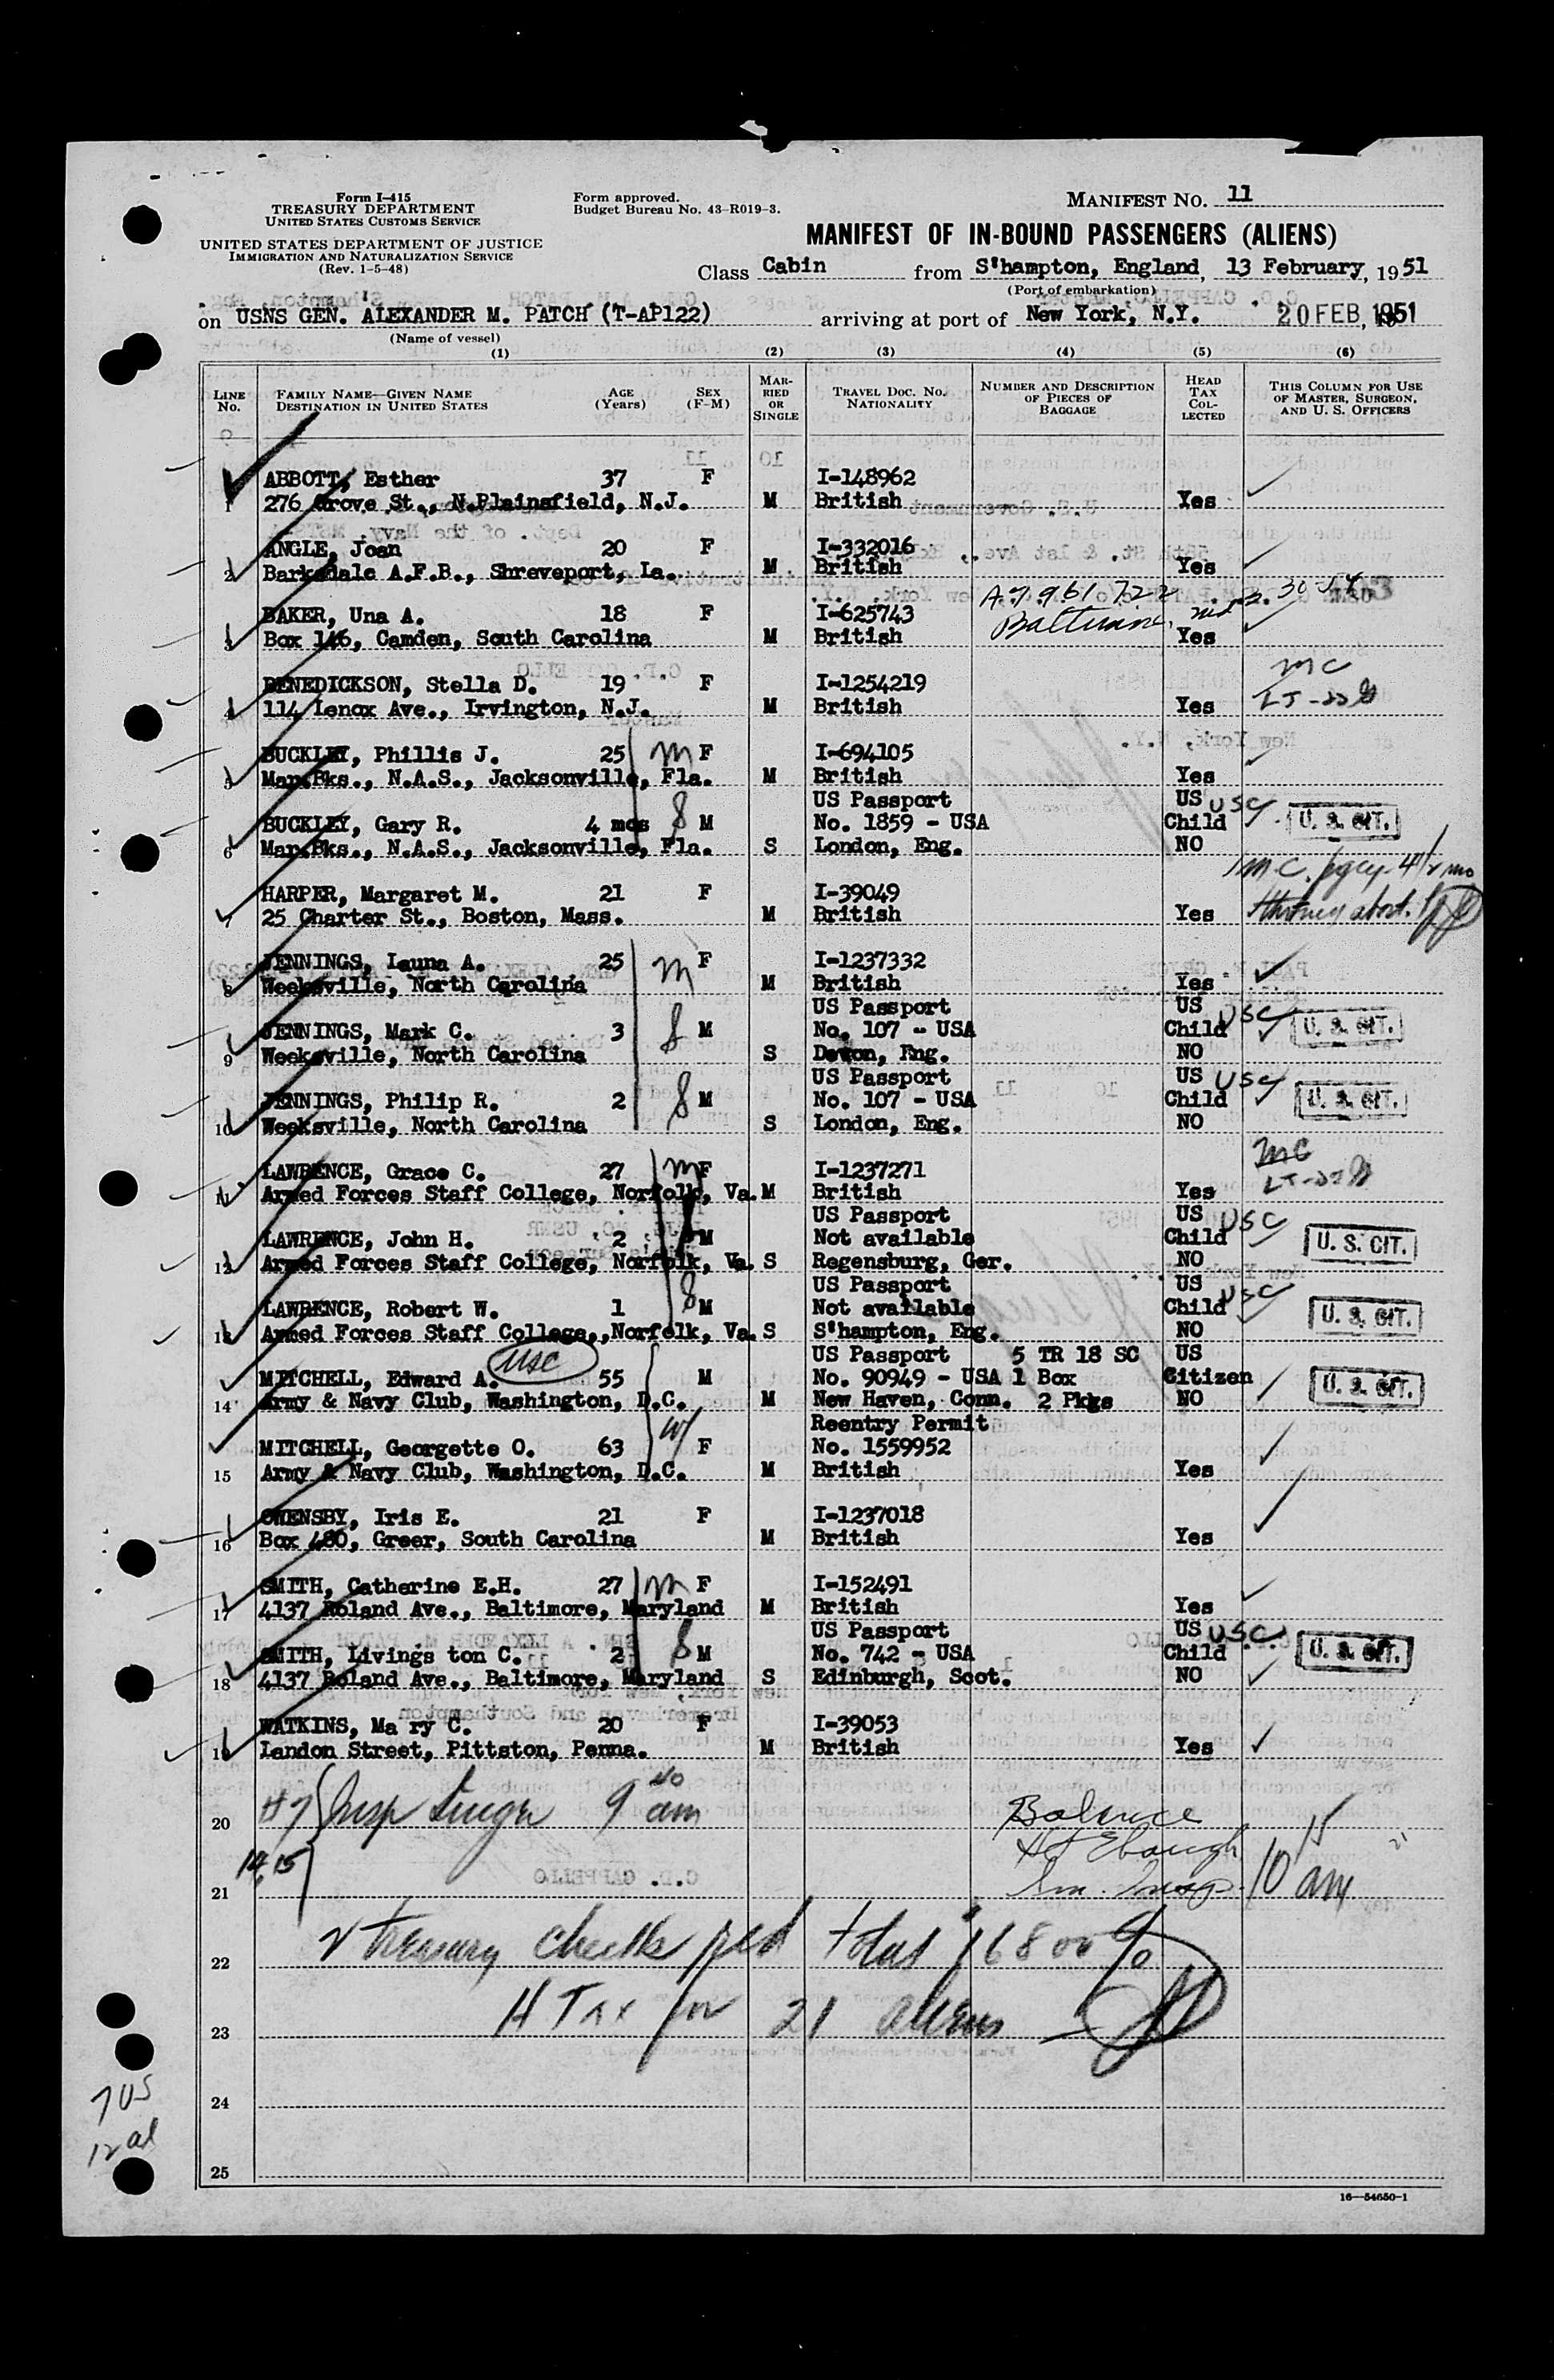 Form I-415
TREASURY DEPARTMENT
UNITED STATES CUSTOMS SERVICE
UNITED STATES DEPARTMENT OF JUSTICE
IMMIGRATION AND NATURALIZATION SERVICE
(Rev. 1-5-48)
Form approved.
Budget Bureau No. 43-R019-3.
MANIFEST NO. 11
MANIFEST OF IN-BOUND PASSENGERS (ALIENS)
Class Cabin from S'hampton, England, 13 February, 1951
(Port of embarkation)
on USNS GEN. ALEXANDER M. PATCH (T-AP122) arriving at port of New York, N.Y. 20 FEB, 1951
(Name of vessel)
(1) (2) (3) (4) (5) (6)
LINE No. FAMILY NAME—GIVEN NAME DESTINATION IN UNITED STATES AGE (Years) SEX (F-M) MARRIED OR SINGLE TRAVEL DOC. NO. NATIONALITY NUMBER AND DESCRIPTION OF PIECES OF BAGGAGE HEAD TAX COLLECTED THIS COLUMN FOR USE OF MASTER, SURGEON, AND U. S. OFFICERS
ABBOTT, Esther 37 F I-148962
1 276 Grove St., N.Plainsfield, N.J. M British Yes
ANGLE, Joan 20 F I-332016
2 Barksdale A.F.B., Shreveport, La. M British Yes
A7961722
BAKER, Una A. 18 F I-625743 Baltimore, Md
3 Box 146, Camden, South Carolina M British Yes
BENEDICKSON, Stella D. 19 F I-1254219 MC
4 114 Lenox Ave., Irvington, N.J. M British Yes
BUCKLEY, Phillis J. 25 m F I-694105
5 Mar.Bks., N.A.S., Jacksonville, Fla. M British Yes
US Passport US USC
BUCKLEY, Gary R. 4 mos S M No. 1859 - USA Child U. S. CIT.
6 Mar.Bks., N.A.S., Jacksonville, Fla. S London, Eng. NO
HARPER, Margaret M. 21 F I-39049
7 25 Charter St., Boston, Mass. M British Yes
JENNINGS, Launa A. 25 m F I-1237332
8 Weeksville, North Carolina M British Yes
US Passport US USC
JENNINGS, Mark C. 3 S M No. 107 - USA Child U. S. CIT.
9 Weeksville, North Carolina S Devon, Eng. NO
US Passport US USC
JENNINGS, Philip R. 2 S M No. 107 - USA Child U. S. CIT.
10 Weeksville, North Carolina S London, Eng. NO
LAWRENCE, Grace C. 27 m F I-1237271 MC
11 Armed Forces Staff College, Norfolk, Va. M British Yes
US Passport US USC
LAWRENCE, John H. 2 M Not available Child U. S. CIT.
12 Armed Forces Staff College, Norfolk, Va. S Regensburg, Ger. NO
US Passport US USC
LAWRENCE, Robert W. 1 S M Not available Child U. S. CIT.
13 Armed Forces Staff College,,Norfolk, Va. S S'hampton, Eng. NO
USC US Passport 5 TR 18 SC US
MITCHELL, Edward A. 55 M No. 90949 - USA 1 Box Citizen U. S. CIT.
14 Army & Navy Club, Washington, D.C. M New Haven, Conn. 2 Pkgs NO
W Reentry Permit
MITCHELL, Georgette O. 63 F No. 1559952
15 Army & Navy Club, Washington, D.C. M British Yes
OWENSBY, Iris E. 21 F I-1237018
16 Box 480, Greer, South Carolina M British Yes
SMITH, Catherine E.H. 27 m F I-152491
17 4137 Roland Ave., Baltimore, Maryland M British Yes
US Passport US USC
SMITH, Livings ton C. 2 S M No. 742 - USA Child U. S. CIT.
18 4137 Roland Ave., Baltimore, Maryland S Edinburgh, Scot. NO
WATKINS, Ma ry C. 20 F I-39053
19 Landon Street, Pittston, Penna. M British Yes
20 #7 Insp 9 40 am Balance
14, 15 10 15 am
21
22 2 Treasury checks total 168 00
23 H Tax for 21 aliens
7 US
12 al
24
25
16—54650-1